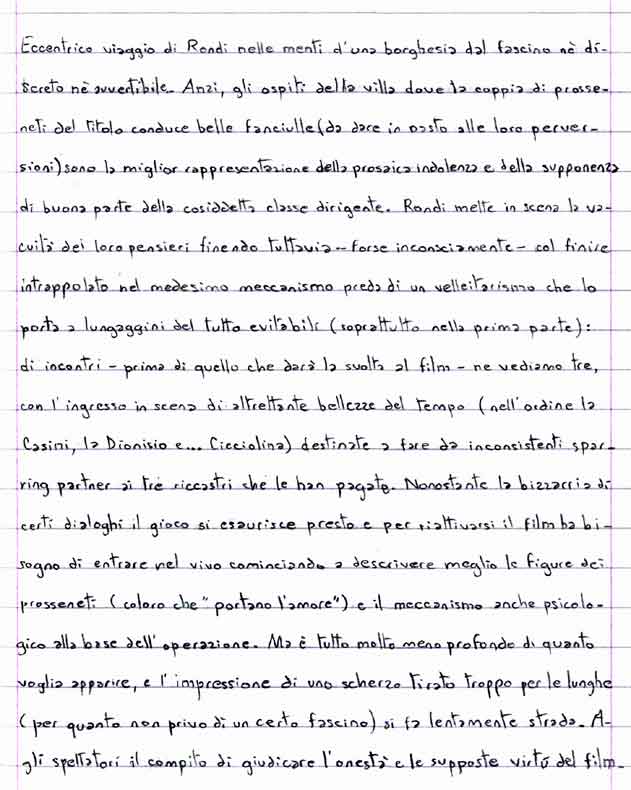 Eccentrico viaggio di Rondi nelle menti d'una borghesia dal fascino nè di-
screto nè avvertibile. Anzi, gli ospiti della villa dove la coppia di prosse-
neti del titolo conduce belle fanciulle (da dare in pasto alle loro perver-
sioni) sono la miglior rappresentazione della prosaica indolenza e della supponenza
di buona parte della cosiddetta classe dirigente. Rondi mette in scena la va-
cuità dei loro pensieri finendo tuttavia - forse inconsciamente - col finire
intrappolato nel medesimo meccanismo preda di un velleitarismo che lo
porta a lungaggini del tutto evitabili (soprattutto nella prima parte):
di incontri - prima di quello che darà la svolta al film - ne vediamo tre,
con l'ingresso in scena di altrettante bellezze del tempo (nell'ordine la
Casini, la Dionisio e... Cicciolina) destinate a fare da inconsistenti spar-
ring partner ai tre riccastri che le han pagate. Nonostante la bizzarria di
certi dialoghi il gioco si esaurisce presto e per riattivarsi il film ha bi-
sogno di entrare nel vivo cominciando a descrivere meglio le figure dei
prosseneti (coloro che "portano l'amore") e il meccanismo anche psicolo-
gico alla base dell'operazione. Ma è tutto molto meno profondo di quanto
voglia apparire, e l'impressione di uno scherzo tirato troppo per le lunghe
(per quanto non privo di un certo fascino) si fa lentamente strada. A-
gli spettatori il compito di giudicare l'onestà e le supposte virtú del film.